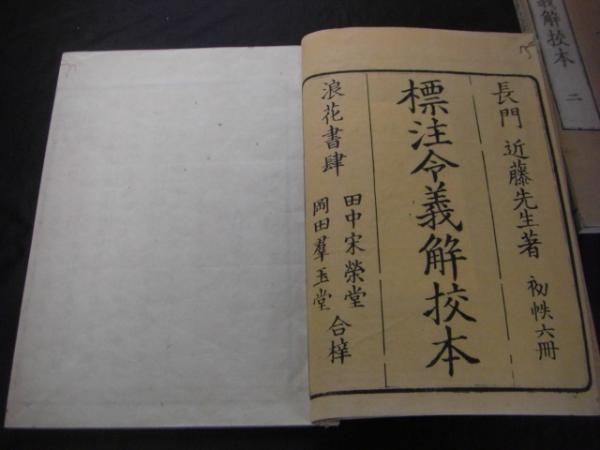 長門 近藤先生著 初帙六冊
標注令義解挍本
浪花書肆
田中宋榮堂
岡田羣玉堂
合梓
義解挍本 二